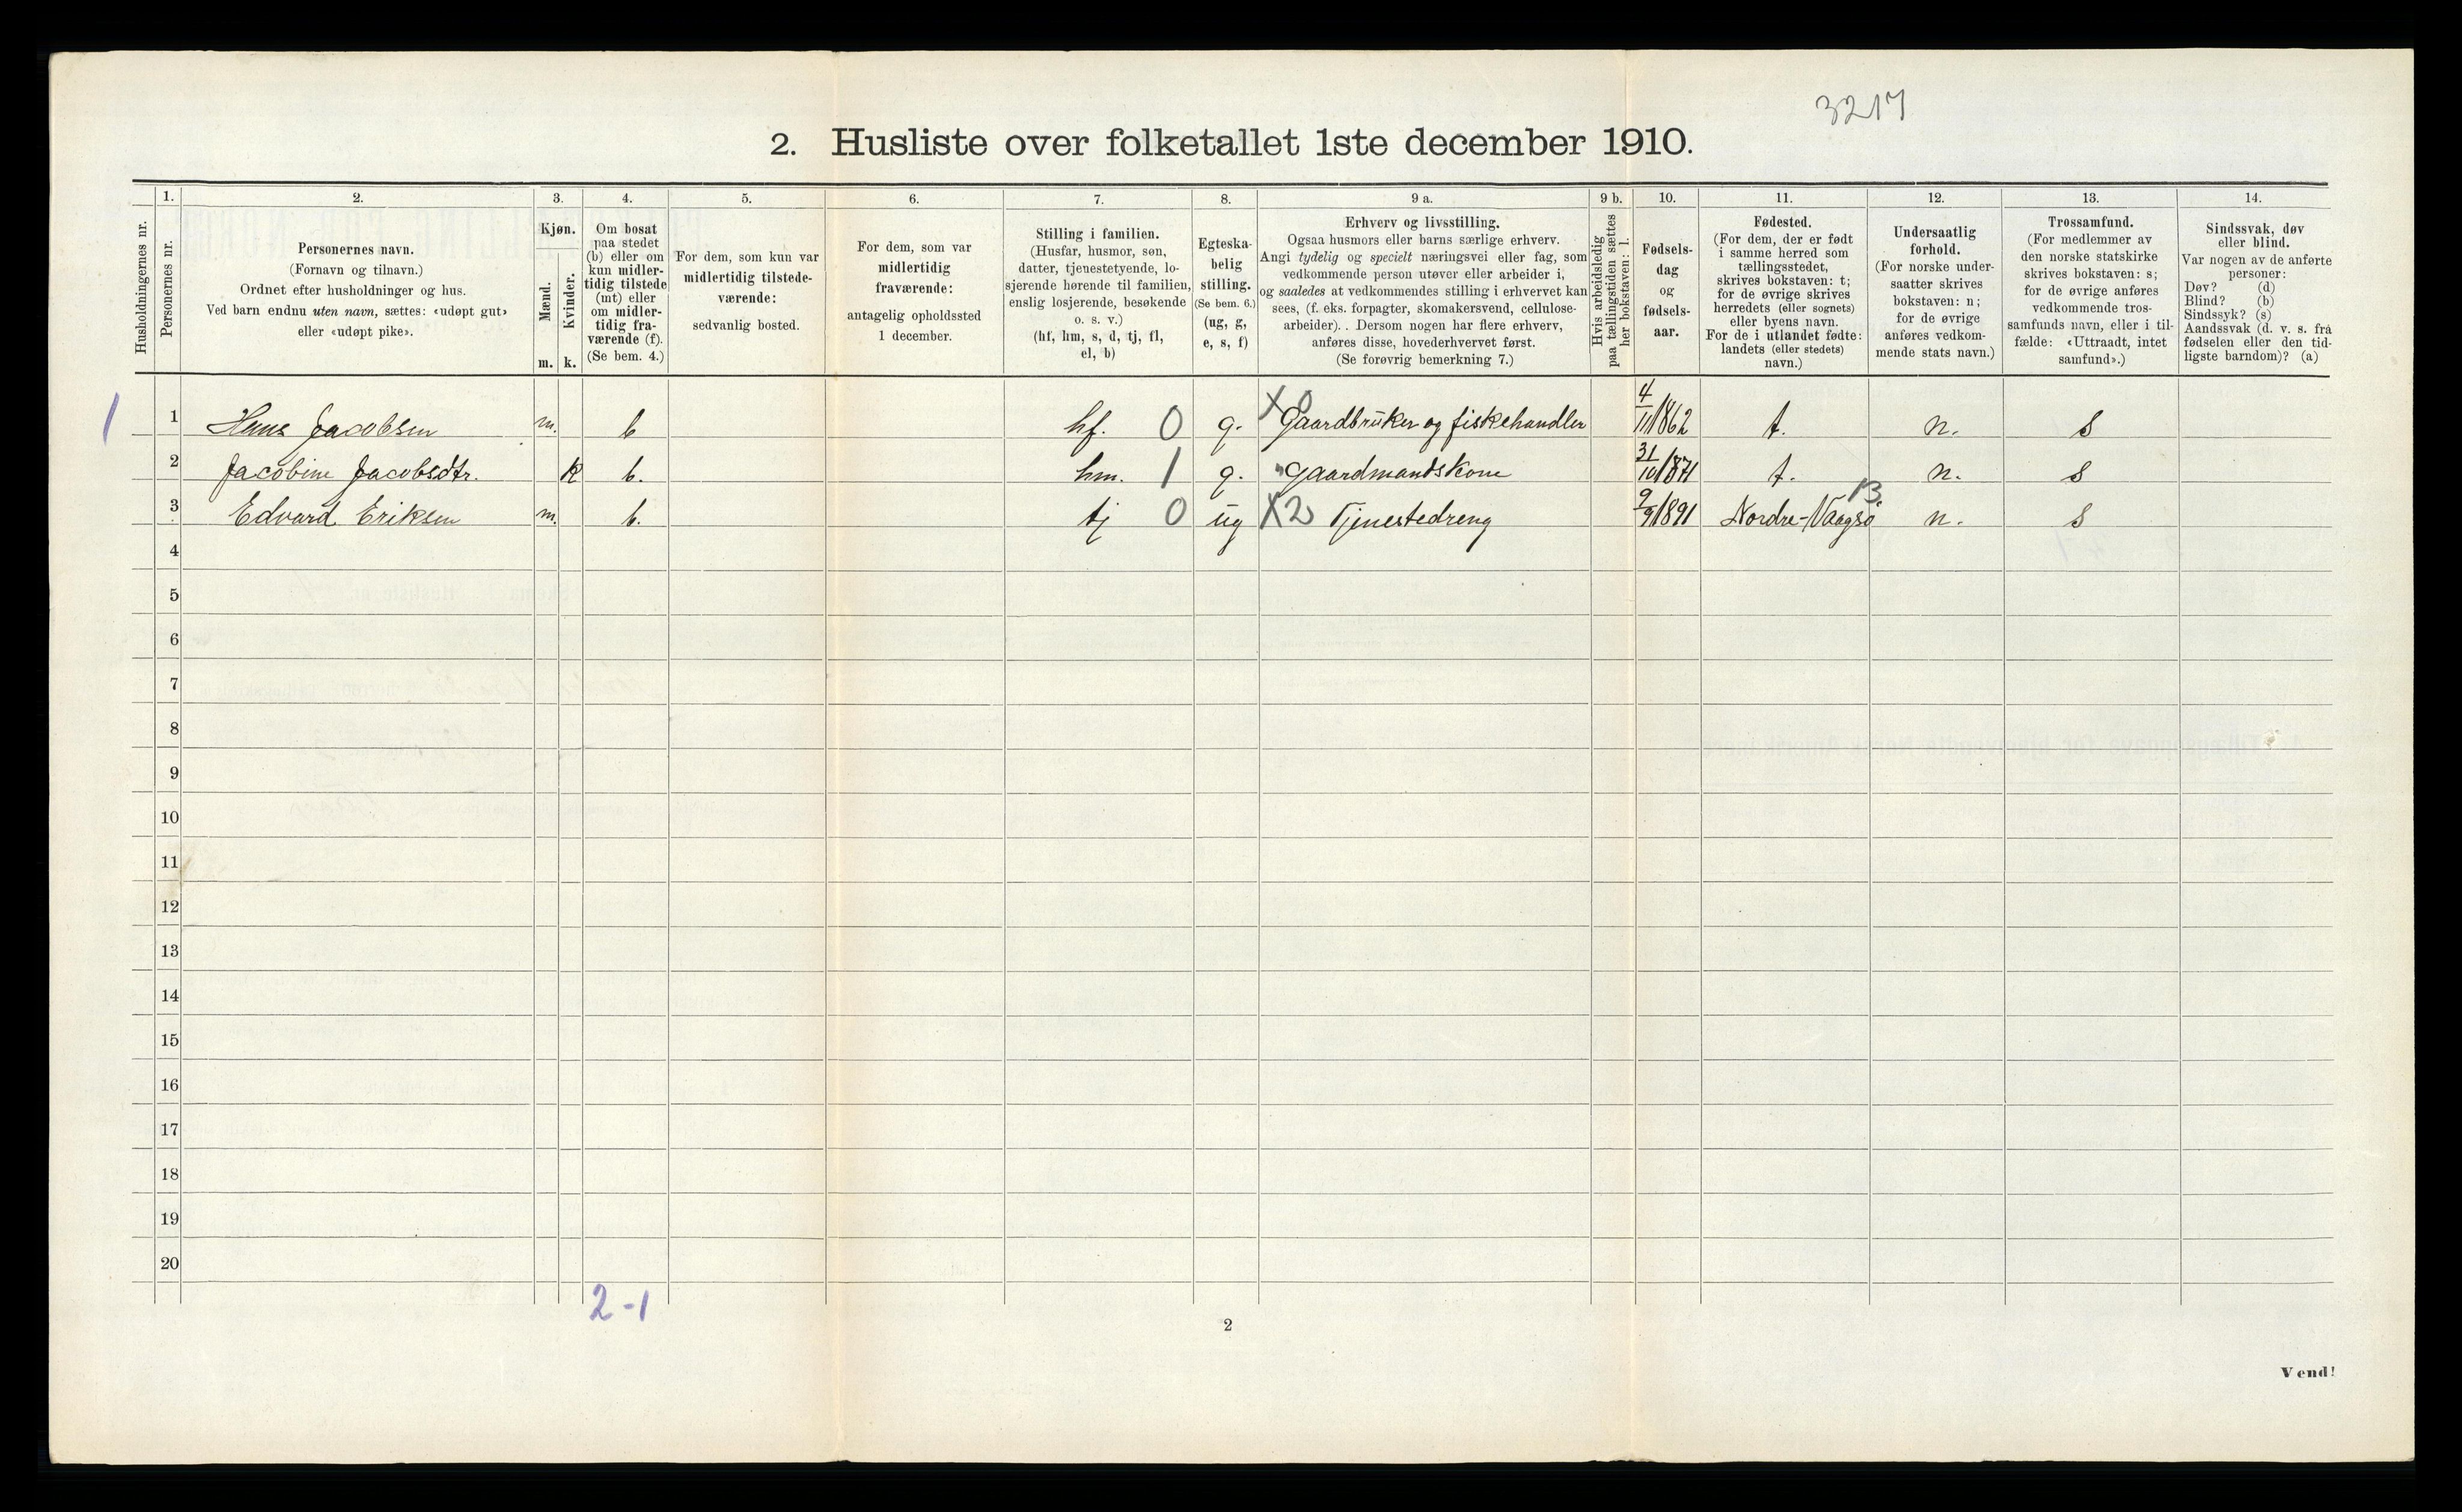 3217
2. Husliste over folketallet 1ste december 1910.
Husholdningernes nr.
1.
Personernes nr.
2.
Personernes navn.
(Fornavn og tilnavn.)
Ordnet efter husholdninger og hus.
Ved barn endnu uten navn, sættes: «udøpt gut»
eller «udøpt pike».
3.
Kjøn.
Mænd.
m.
Kvinder.
k.
4.
Om bosat
paa stedet
(b) eller om
kun midler-
tidig tilstede
(mt) eller
om midler-
tidig fra-
værende (f).
(Se bem. 4.)
5.
For dem, som kun var
midlertidig tilstede-
værende:
sedvanlig bosted.
6.
For dem, som var
midlertidig
fraværende:
antagelig opholdssted
1 december.
7.
Stilling i familien.
(Husfar, husmor, søn,
datter, tjenestetyende, lo-
sjerende hørende til familien,
enslig losjerende, besøkende
o. s. v.)
(hf, hm, s, d, tj, fl,
el, b)
8.
Egteska-
belig
stilling.
(Se bem. 6.)
(ug, g,
e, s, f)
9 a.
Erhverv og livsstilling.
Ogsaa husmors eller barns særlige erhverv.
Angi tydelig og specielt næringsvei eller fag, som
vedkommende person utøver eller arbeider i,
og saaledes at vedkommendes stilling i erhvervet kan
sees, (f. eks. forpagter, skomakersvend, cellulose-
arbeider). . Dersom nogen har flere erhverv,
anføres disse, hovederhvervet først.
(Se forøvrig bemerkning 7.)
9 b.
Hvis arbeidsledig
paa tællingstiden sættes
her bokstaven: l.
10.
Fødsels-
dag
og
fødsels-
aar.
11.
Fødested.
(For dem, der er født
i samme herred som
tællingsstedet,
skrives bokstaven: t;
for de øvrige skrives
herredets (eller sognets)
eller byens navn.
For de i utlandet fødte:
landets (eller stedets)
navn.)
12.
Undersaatlig
forhold.
(For norske under-
saatter skrives
bokstaven: n;
for de øvrige
anføres vedkom-
mende stats navn.)
13.
Trossamfund.
(For medlemmer av
den norske statskirke
skrives bokstaven: s;
for de øvrige anføres
vedkommende tros-
samfunds navn, eller i til-
fælde: «Uttraadt, intet
samfund».)
14.
Sindssvak, døv
eller blind.
Var nogen av de anførte
personer:
Døv? (d)
Blind? (b)
Sindssyk? (s)
Aandssvak (d. v. s. fra
fødselen eller den tid-
ligste barndom)? (a)
1 1 Hans Jacobsen m. b hf. 0 g. X 0 Gaardbrüker og fiskehandler 4/11 1862 t. n. s
2 Jacobine Jacobsdtr. k b. hm. 1 g. " Gaardmandskone 31/10 1871 t. n. s
3 Edvard Eriksen m. b. tj 0 ug X2 Tjenestedreng 9/9 1891 Nordre-Vaagsö 13 n. s
4
5
6
7
8
9
10
11
12
13
14
15
16
17
18
19
20
2-1
2
Vend!